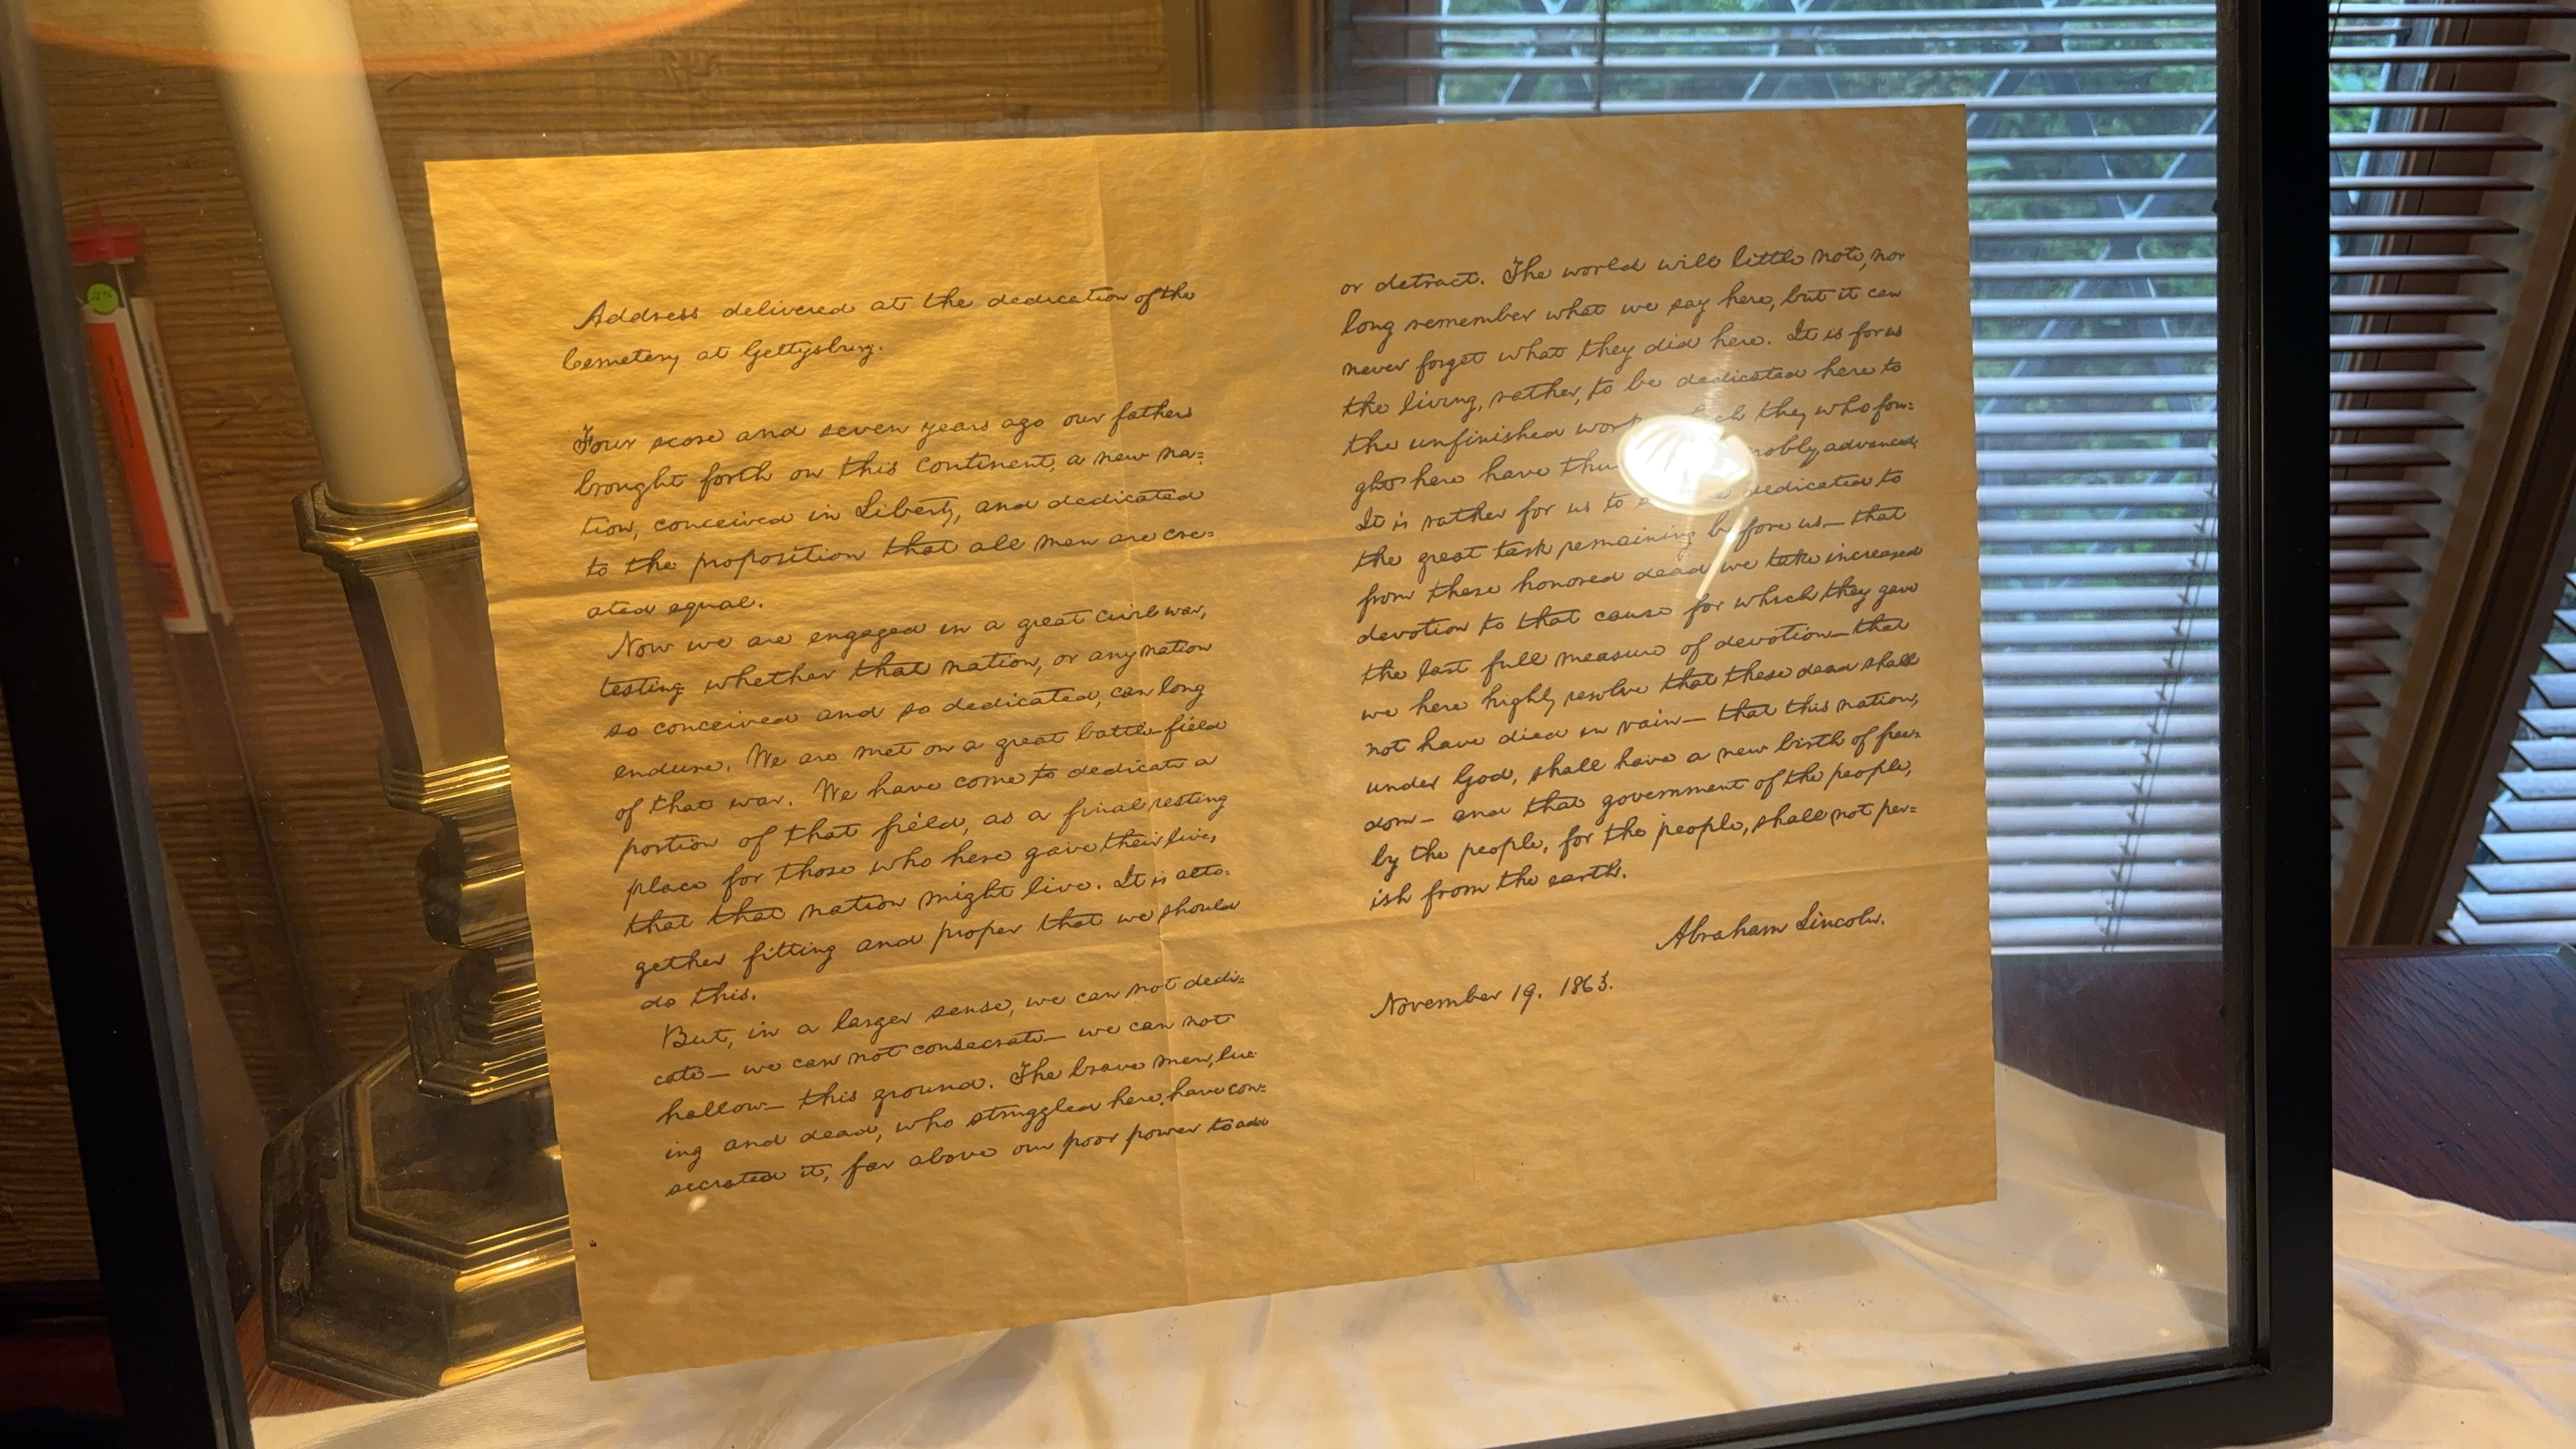 Address delivered at the dedication of the
Cemetery at Gettysburg.
Four score and seven years ago our fathers
brought forth on this continent, a new na=
tion, conceived in Liberty, and dedicated
to the proposition that all men are cre=
ated equal.
Now we are engaged in a great civil war,
testing whether that nation, or any nation
so conceived and so dedicated, can long
endure. We are met on a great battle-field
of that war. We have come to dedicate a
portion of that field, as a final resting
place for those who here gave their lives
that that nation might live. It is alto=
gether fitting and proper that we should
do this.
But, in a larger sense, we can not dedi=
cate— we can not consecrate— we can not
hallow— this ground. The brave men, liv=
ing and dead, who struggled here, have con=
secrated it, far above our poor power to add
or detract. The world will little note, nor
long remember what we say here, but it can
never forget what they did here. It is for us
the living, rather, to be dedicated here to
the unfinished work they who fou=
ght here have nobly advanced.
It is rather for us to dedicated to
the great task remaining before us— that
from these honored dead we take increased
devotion to that cause for which they gave
the last full measure of devotion— that
we here highly resolve that these dead shall
not have died in vain— that this nation,
under God, shall have a new birth of free=
dom— and that government of the people,
by the people, for the people, shall not per=
ish from the earth.
Abraham Lincoln.
November 19, 1863.